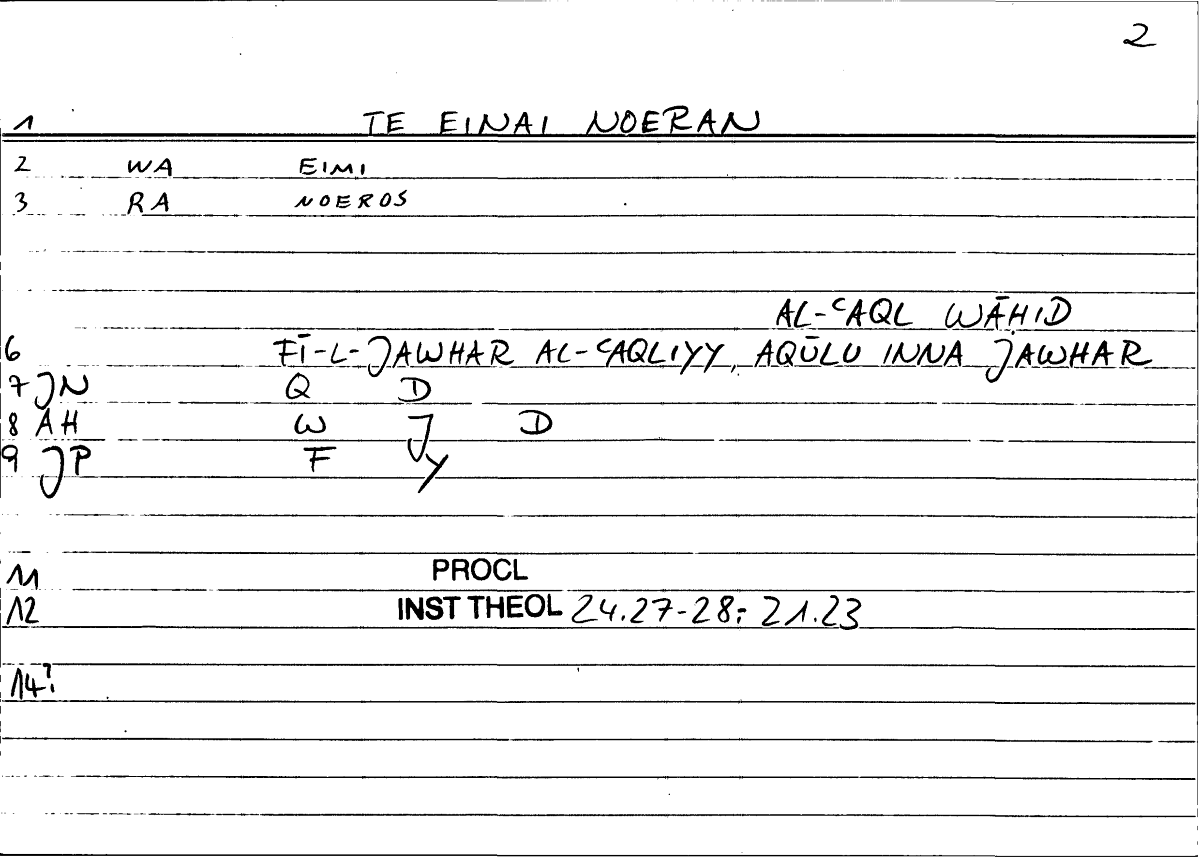 2
1 TE EINAI NOERAN
2 WA EIMI
3 RA NOEROS
AL-ʿAQL WĀHID
6 FĪ-L-JAWHAR AL-ʿAQLIYY, AQŪLU INNA JAWHAR
7 JN Q D
8 AH W J D
9 JP F Y
11 PROCL
12 INST THEOL 24.27-28; 21.23
14?